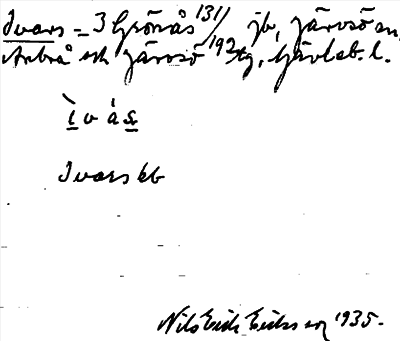 Ivars = 3 Grönås 131/ jb, Järvsö sn,
Arbrå och Järvsö 192 tg, Gävleb. l.
ì v á s
Ivars kb
Nils Erik Eriksson 1935.